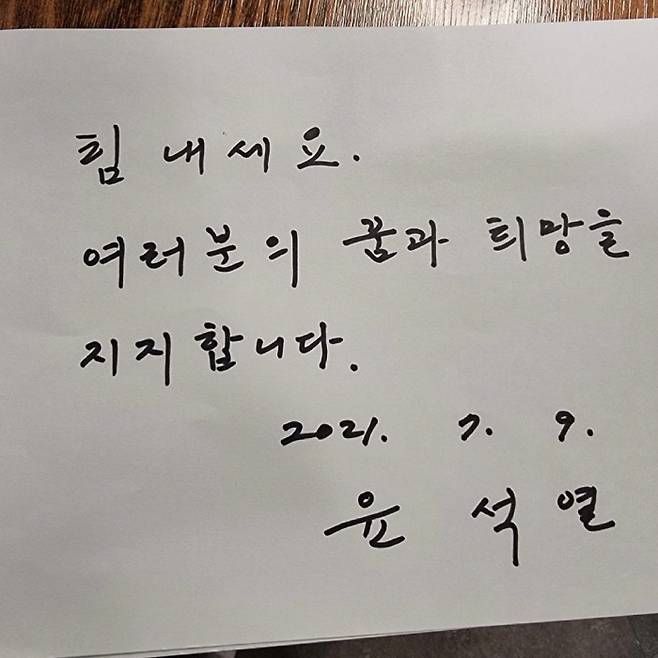 힘 내세요.
여러분의 꿈과 희망을
지지합니다.
2021. 7. 9.
윤석열